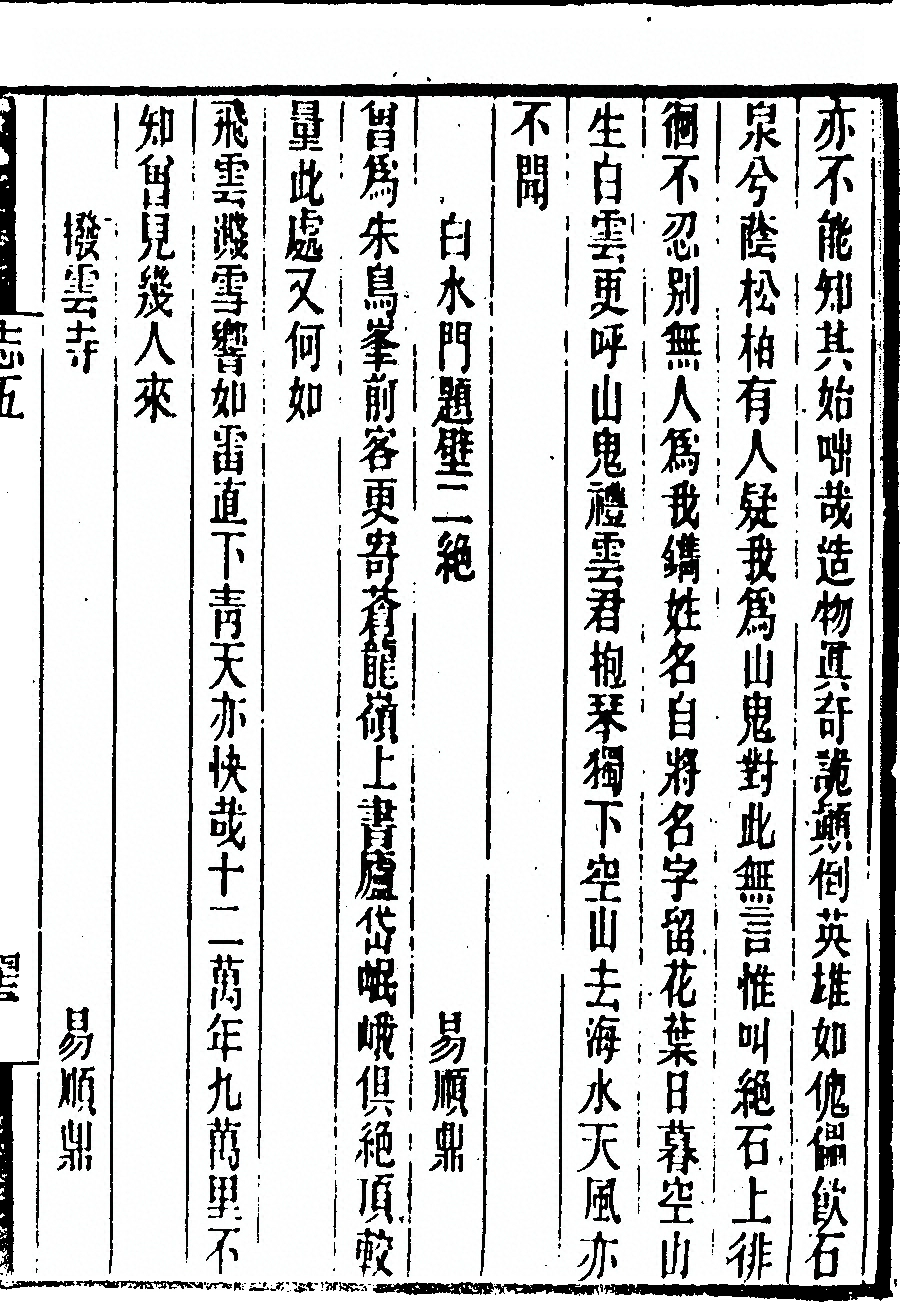 亦不能知其始咄哉造物眞奇詭顚倒英雄如傀儡飮石
泉兮蔭松柏有人疑我爲山鬼對此無言惟叫絕石上徘
徊不忍別無人爲我鐫姓名自將名字留花葉日暮空山
生白雲更呼山鬼禮雲君抱琴獨下空山去海水天風亦
不聞
白水門題壁二絕 易順鼎
曾爲朱鳥峯前客更寄蒼龍嶺上書廬岱岷峨俱絕頂較
量此處又何如
飛雲濺雪響如雷直下靑天亦快哉十二萬年九萬里不
知曾見幾人來
撥雲寺 易順鼎
志五